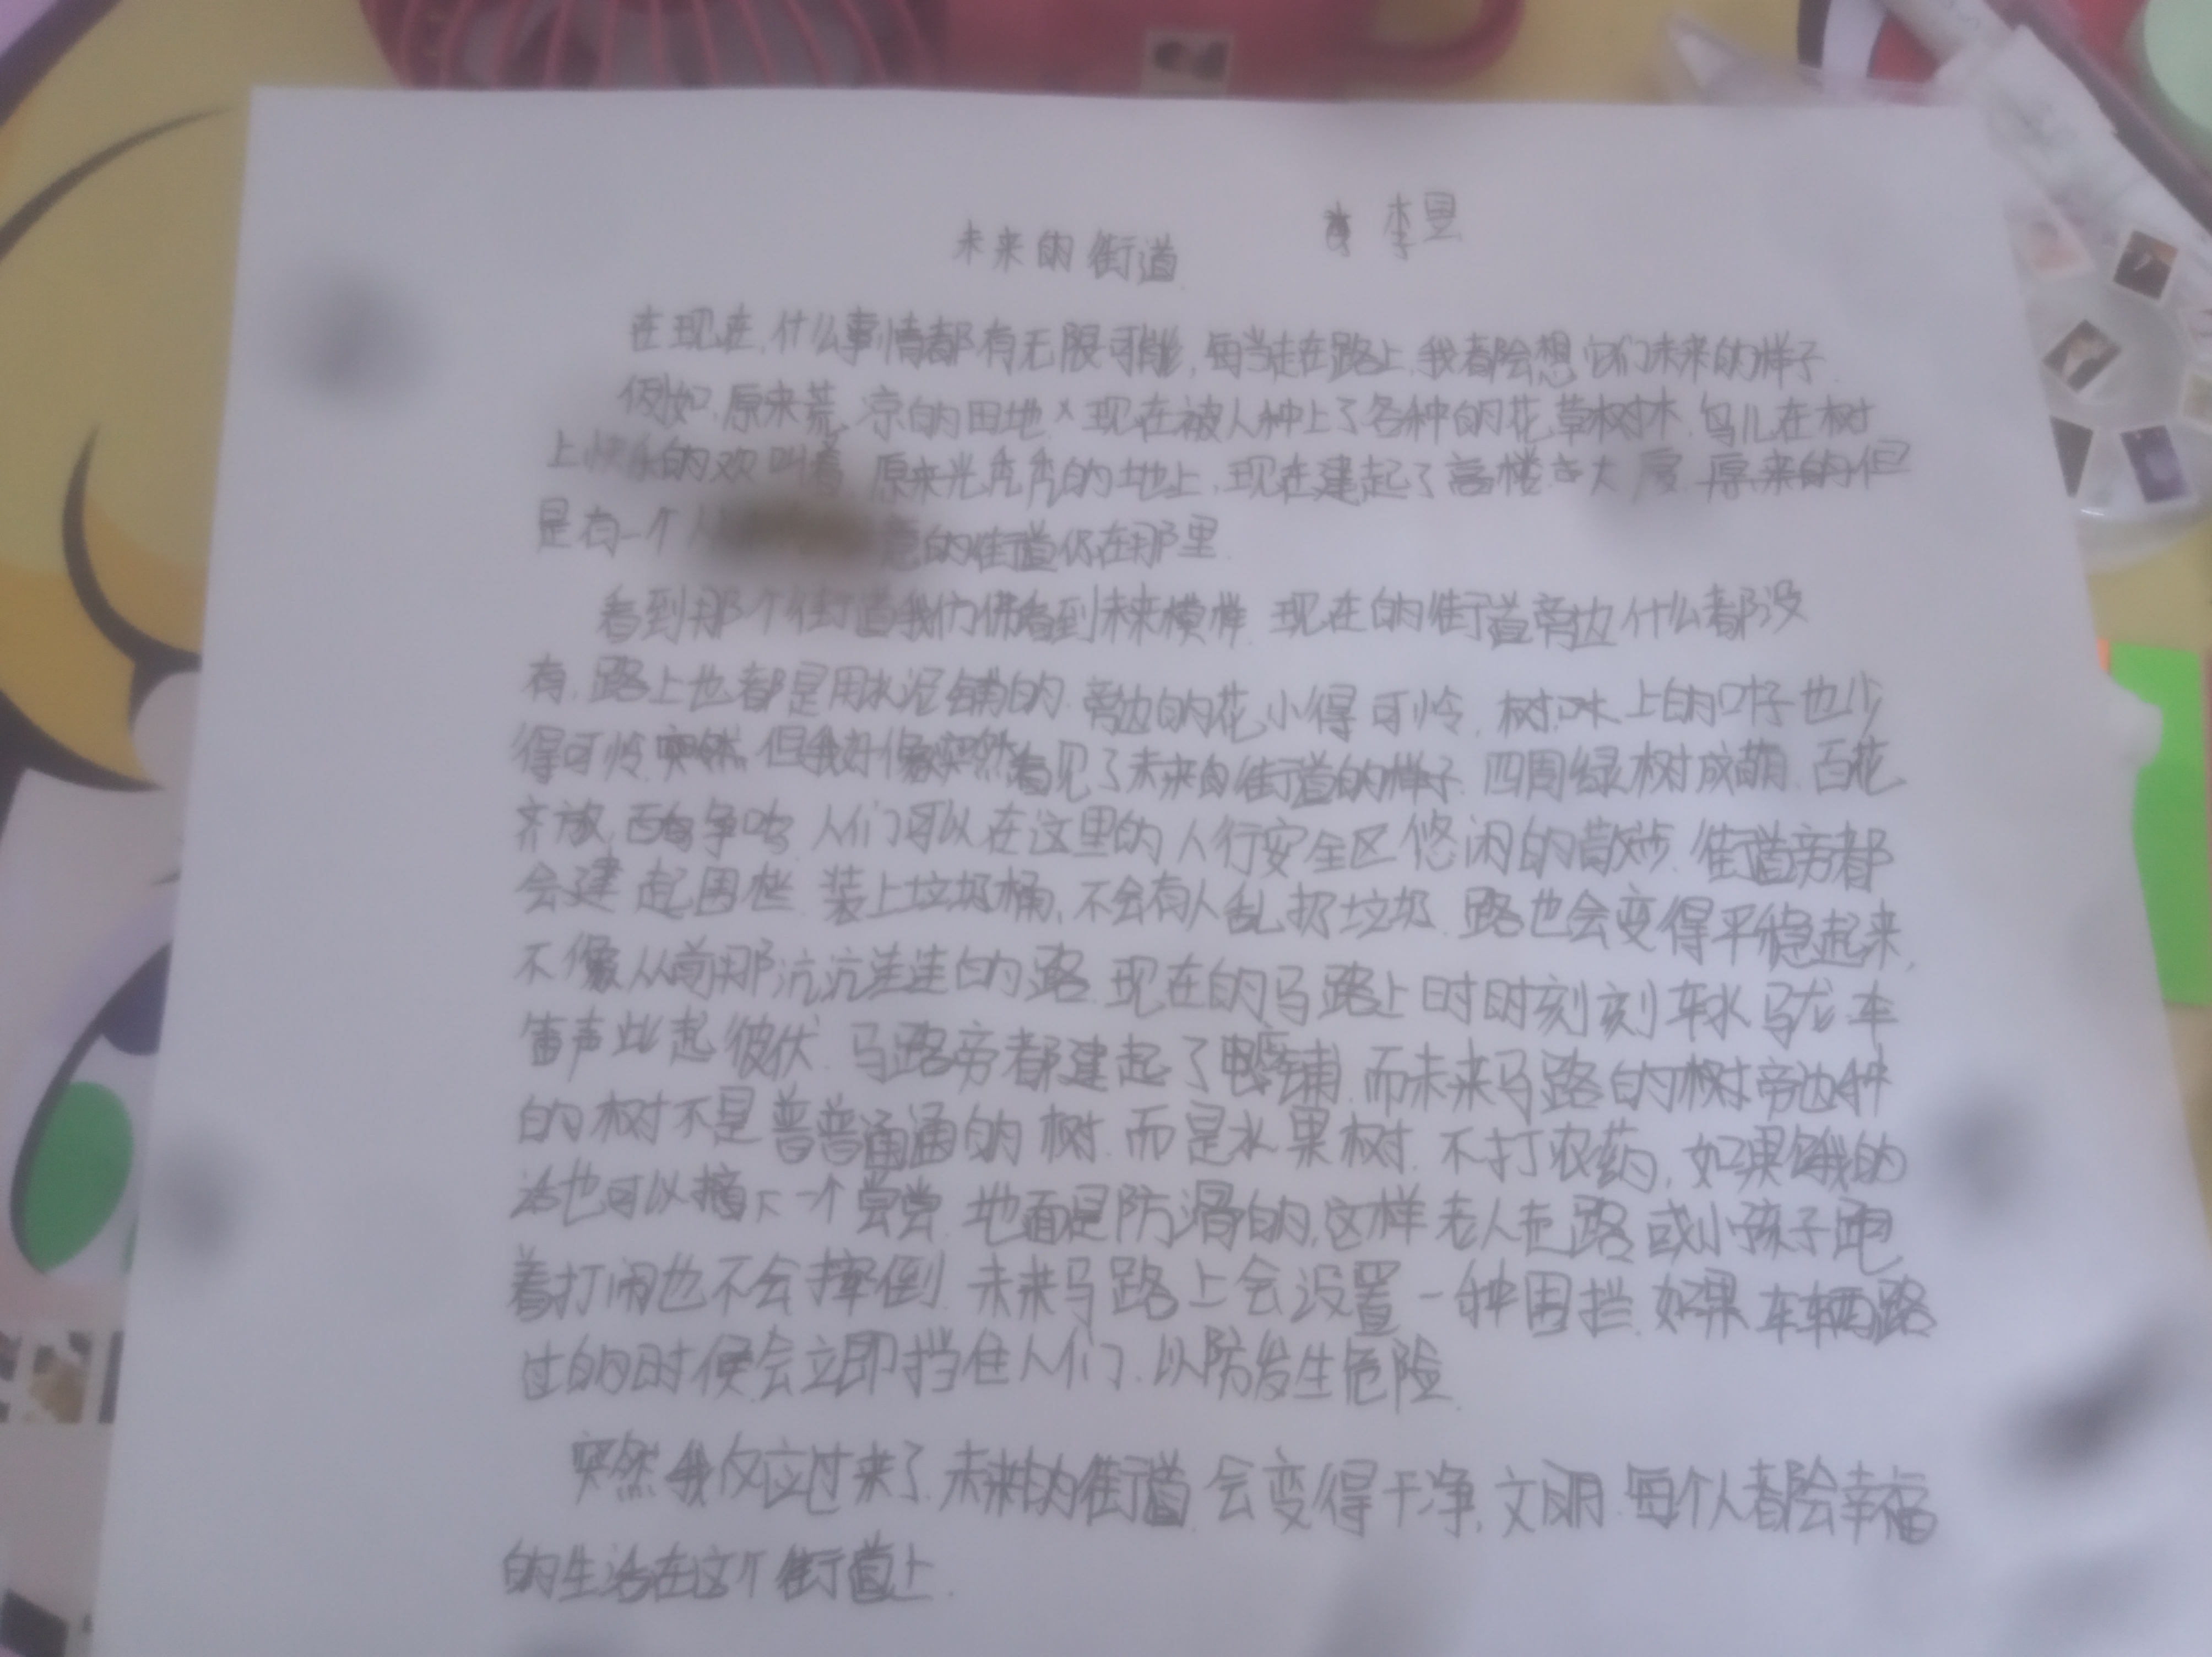 未来的街道 李昱
在现在,什么事情都有无限可能,每当走在路上,我都会想它们未来的样子.
例如,原来荒凉的田地,现在被人种上了各种的花草树木,鸟儿在树
上快乐的欢叫着 原来光秃秃的地上,现在建起了高楼大厦 原来的但
是有一个人 意的街道仍在那里.
看到那个街道我仿佛看到未来模样 现在的街道旁边什么都没
有,路上也都是用水泥铺的.旁边的花小得可怜,树 上的叶子也少
得可怜 但我好像突然看见了未来的街道的样子 四周绿树成荫.百花
齐放,百鸟争鸣 人们可以在这里的人行安全区悠闲的散步.街道旁都
会建起围栏 装上垃圾桶,不会有人乱扔垃圾.路也会变得平稳起来,
不像从前那坑坑洼洼的路.现在的马路上时时刻刻车水马龙 车
笛声此起彼伏.马路旁都建起了店铺.而未来马路的树旁边种
的树不是普普通通的树.而是水果树.不打农药,如果饿的
话也可以摘下一个尝尝 地面是防滑的,这样老人走路或小孩子跑
着打闹也不会摔倒.未来马路上会设置一种围拦.如果车辆路
过的时候会立即挡住人们.以防发生危险.
突然我反应过来了.未来的街道会变得干净,文明.每个人都会幸福
的生活在这个街道上.